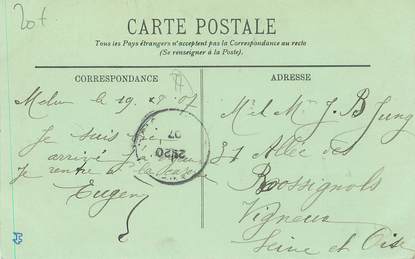 20t
CARTE POSTALE
Tous les Pays étrangers n'acceptent pas la Correspondance au recto
(Se renseigner à la Poste).
CORRESPONDANCE
ADRESSE
Melun le 19
Je suis
arrivé
Je rentre
Eugen
07
M et Mme J. B. Jung
31 Allée des
Rossignols
Vigneux
Seine et Oise